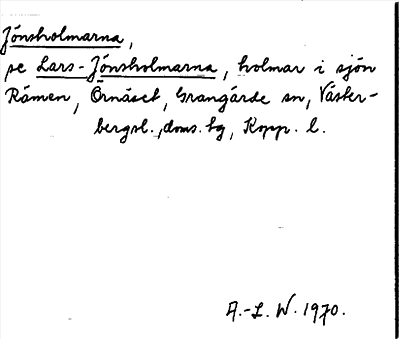 Jönsholmarna,
se Lars-Jönsholmarna, holmar i sjön
Råmen, Örnäset, Grangärde sn, Väster-
bergsl., doms. tg, Kopp. l.
A.-L. W. 1970.